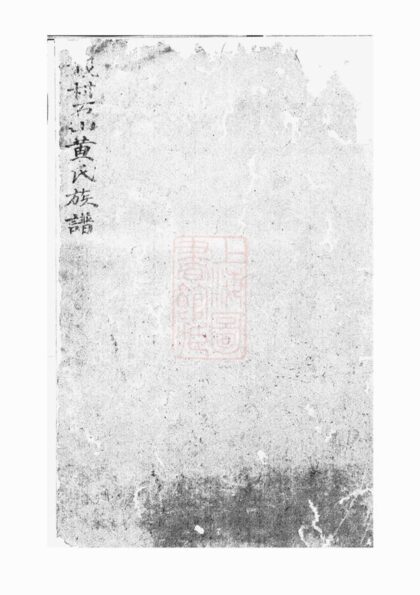 村石山黄氏族譜
上海圖
書館藏